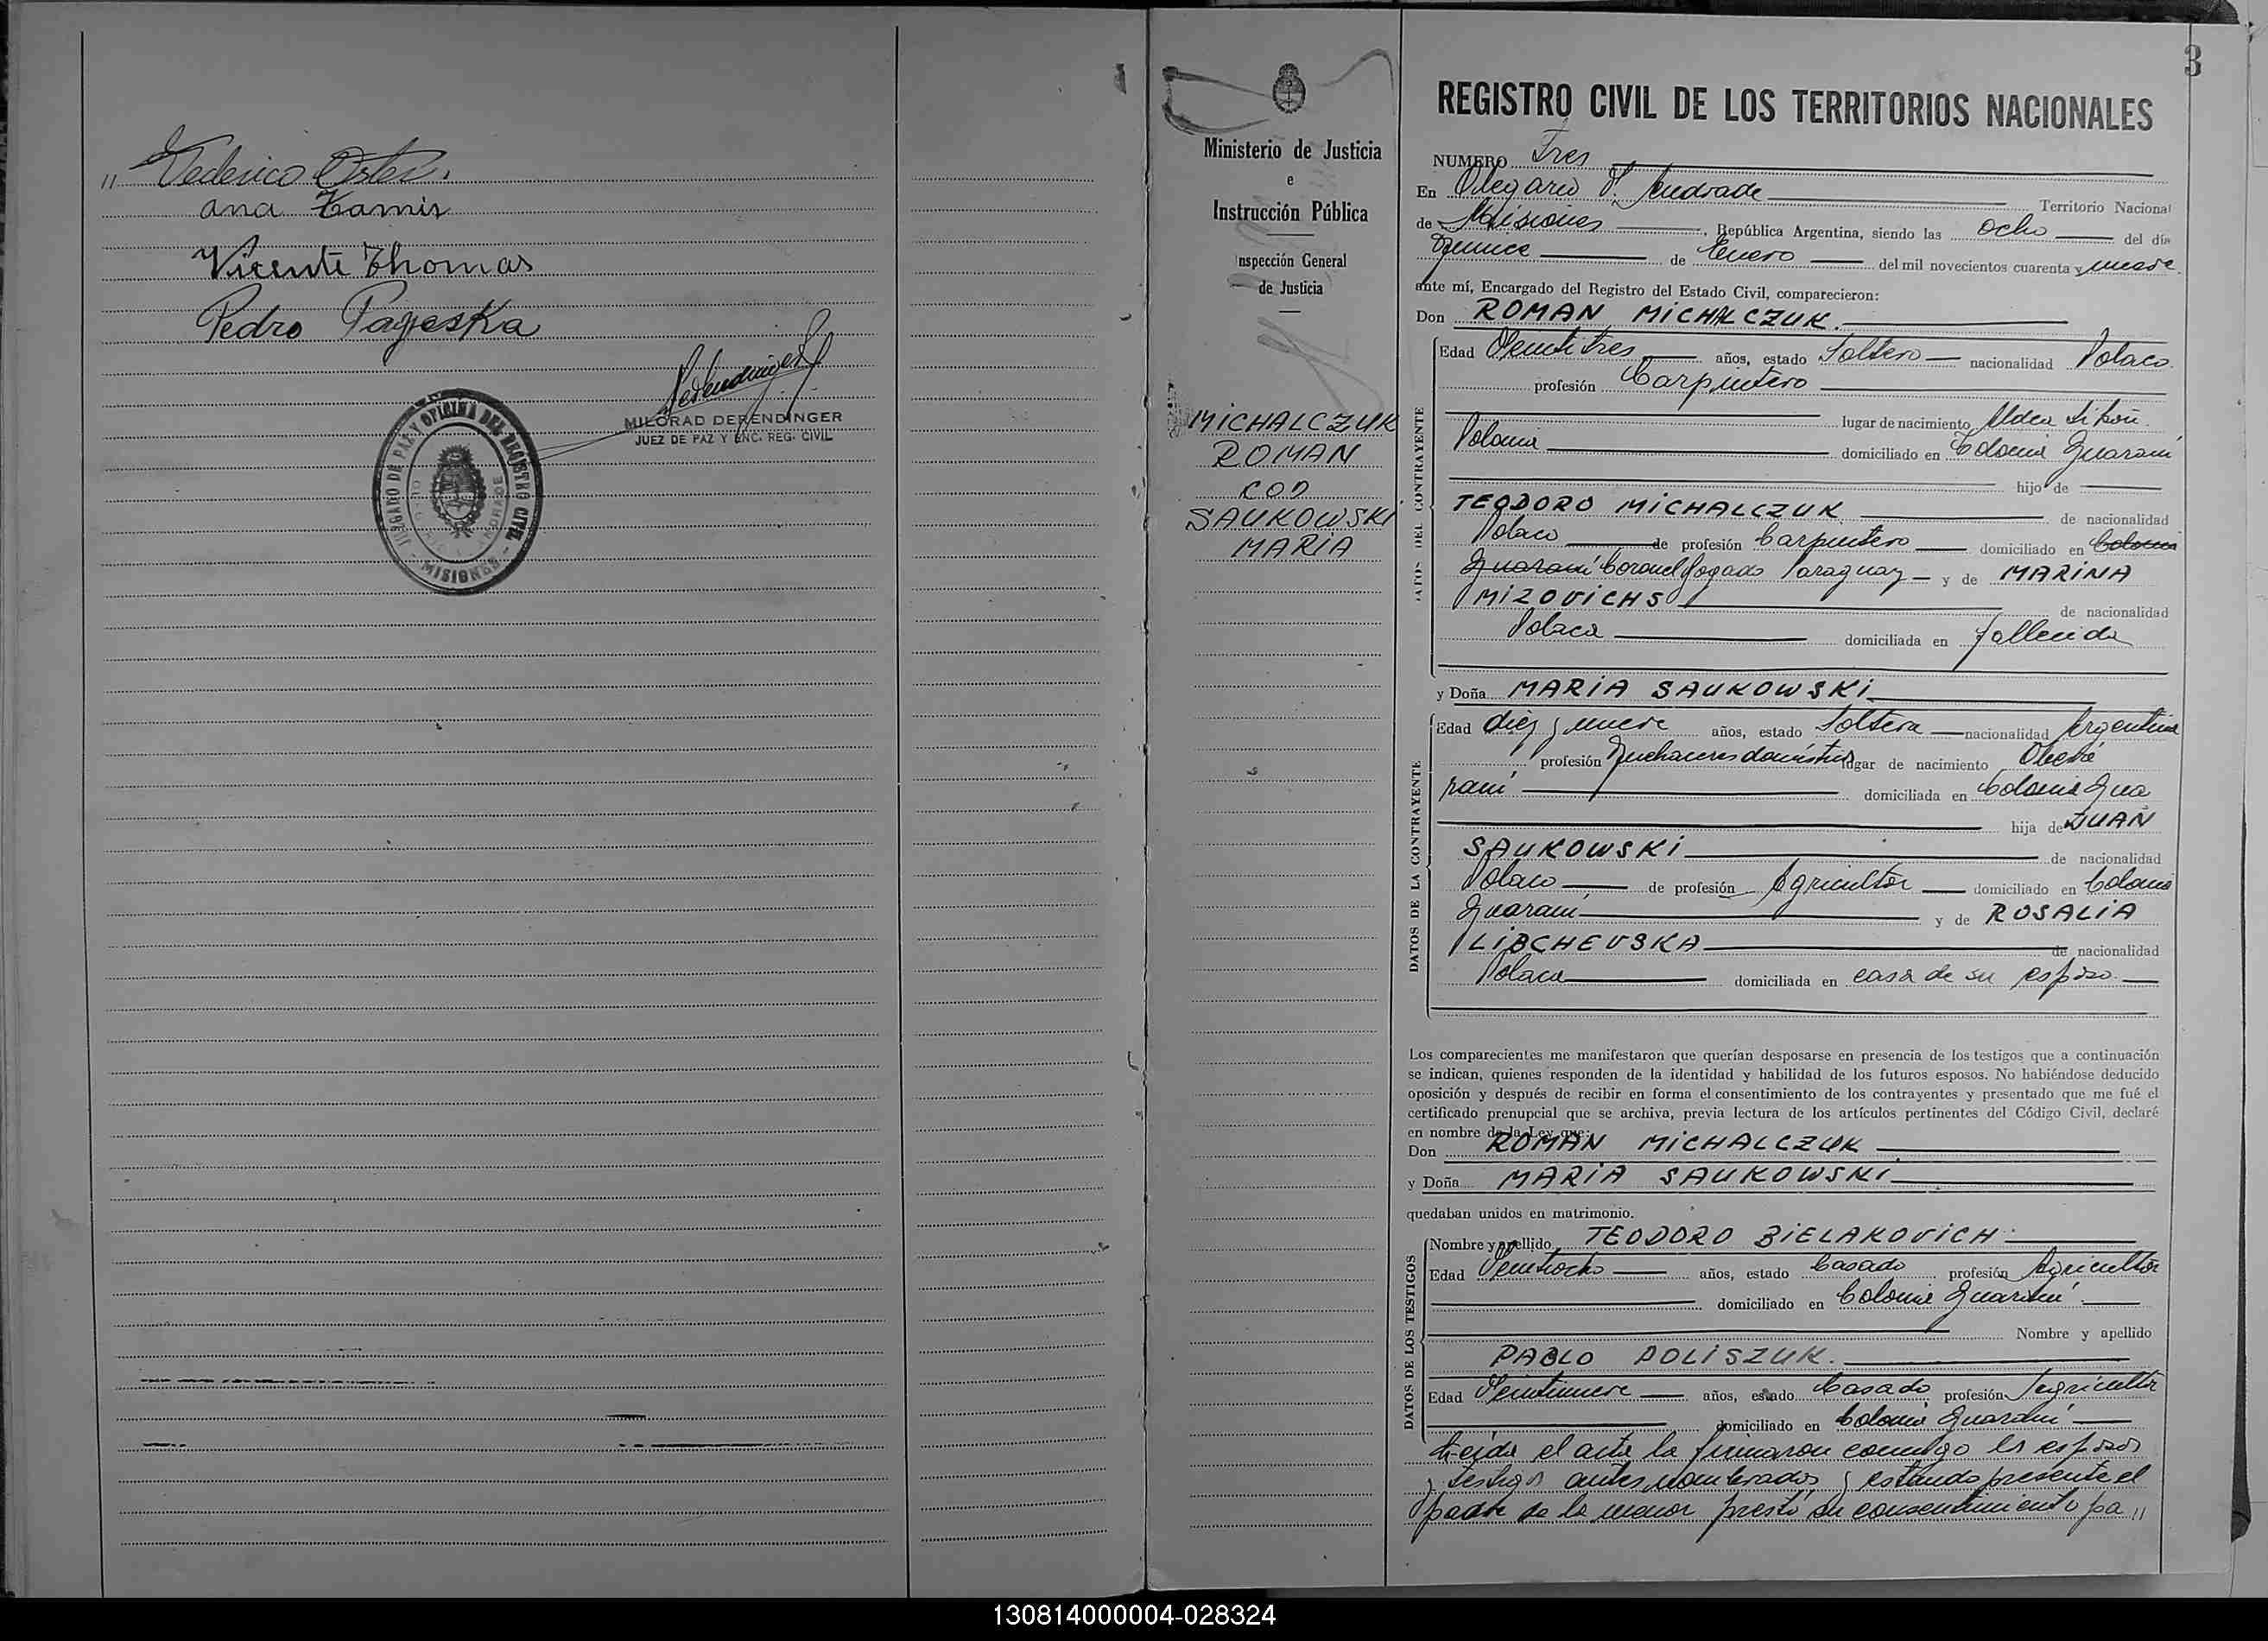 " Federico
Ana Kamis
Vicente Thomas
Pedro Pageska
MILORAD DERENDINGER
JUEZ DE PAZ Y ENC. REG. CIVIL
JUZGADO DE PAZ Y OFICINA DEL REGISTRO CIVIL
- MISIONES -
3
Ministerio de Justicia
e
Instrucción Pública
Inspección General
de Justicia
MICHALCZUK
ROMAN
COD
SAUKOWSKI
MARIA
REGISTRO CIVIL DE LOS TERRITORIOS NACIONALES
NUMERO Tres
En Olegario V. Andrade Territorio Nacional
de Misiones, República Argentina, siendo las ocho del día
quince de Enero del mil novecientos cuarenta y nueve
ante mí, Encargado del Registro del Estado Civil, comparecieron:
Don ROMAN MICHALCZUK.
Edad Veintitres años, estado Soltero nacionalidad Polaco.
profesión Carpintero
lugar de nacimiento Aldea
Polonia domiciliado en Colonia Guaraní
hijo de
TEODORO MICHALCZUK de nacionalidad
Polaco de profesión Carpintero domiciliado en Colonia
Guaraní Coronel Bogado Paraguay y de MARINA
MIZOVICHS de nacionalidad
Polaca domiciliada en fallecida
y Doña MARIA SAUKOWSKI
Edad diez y nueve años, estado Soltera nacionalidad Argentina
profesión Quehaceres domésticos lugar de nacimiento Oberá
domiciliada en Colonia Gua
raní
hija de JUAN
SAUKOWSKI de nacionalidad
Polaco de profesión Agricultor domiciliado en Colonia
Guaraní y de ROSALIA
LIBCHEVSKA de nacionalidad
Polaca domiciliada en casa de su esposo
Los comparecientes me manifestaron que querían desposarse en presencia de los testigos que a continuación
se indican, quienes responden de la identidad y habilidad de los futuros esposos. No habiéndose deducido
oposición y después de recibir en forma el consentimiento de los contrayentes y presentado que me fué el
certificado prenupcial que se archiva, previa lectura de los artículos pertinentes del Código Civil, declaré
en nombre de la Ley que:
Don ROMAN MICHALCZUK
y Doña MARIA SAUKOWSKI
quedaban unidos en matrimonio.
Nombre y apellido TEODORO BIELAKOVICH
Edad Veintiocho años, estado Casado profesión Agricultor
domiciliado en Colonia Guaraní
Nombre y apellido
PABLO POLISZUK.
Edad Veintinueve años, estado Casado profesión Agricultor
domiciliado en Colonia Guaraní
Leída el acta la firmaron conmigo los esposos
y testigos antes nombrados y estando presente el
padre de la menor prestó su consentimiento pa "
DATOS DEL CONTRAYENTE
DATOS DE LA CONTRAYENTE
DATOS DE LOS TESTIGOS
130814000004-028324